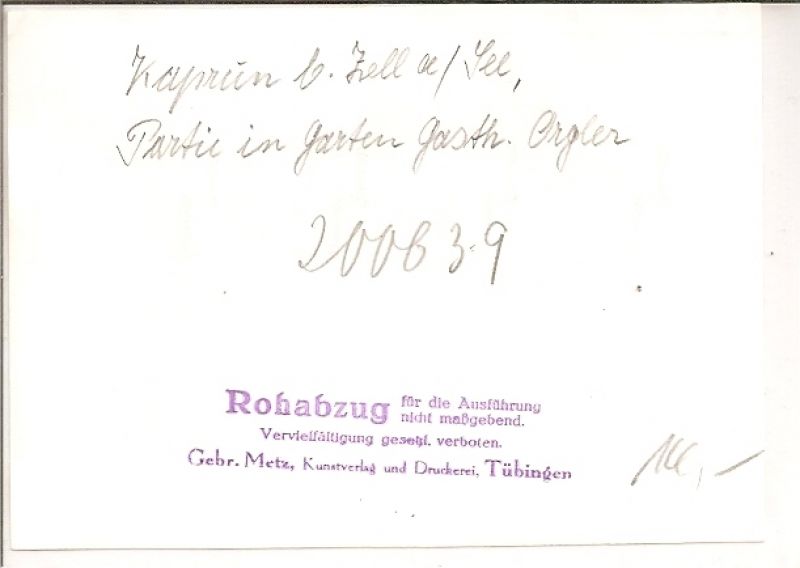 Kaprun b. Zell a/See,
Partie in Garten Gasth. Orgler
200639
Rohabzug für die Ausführung
nicht maßgebend.
Vervielfältigung gesetzl. verboten.
Gebr. Metz, Kunstverlag und Druckerei, Tübingen